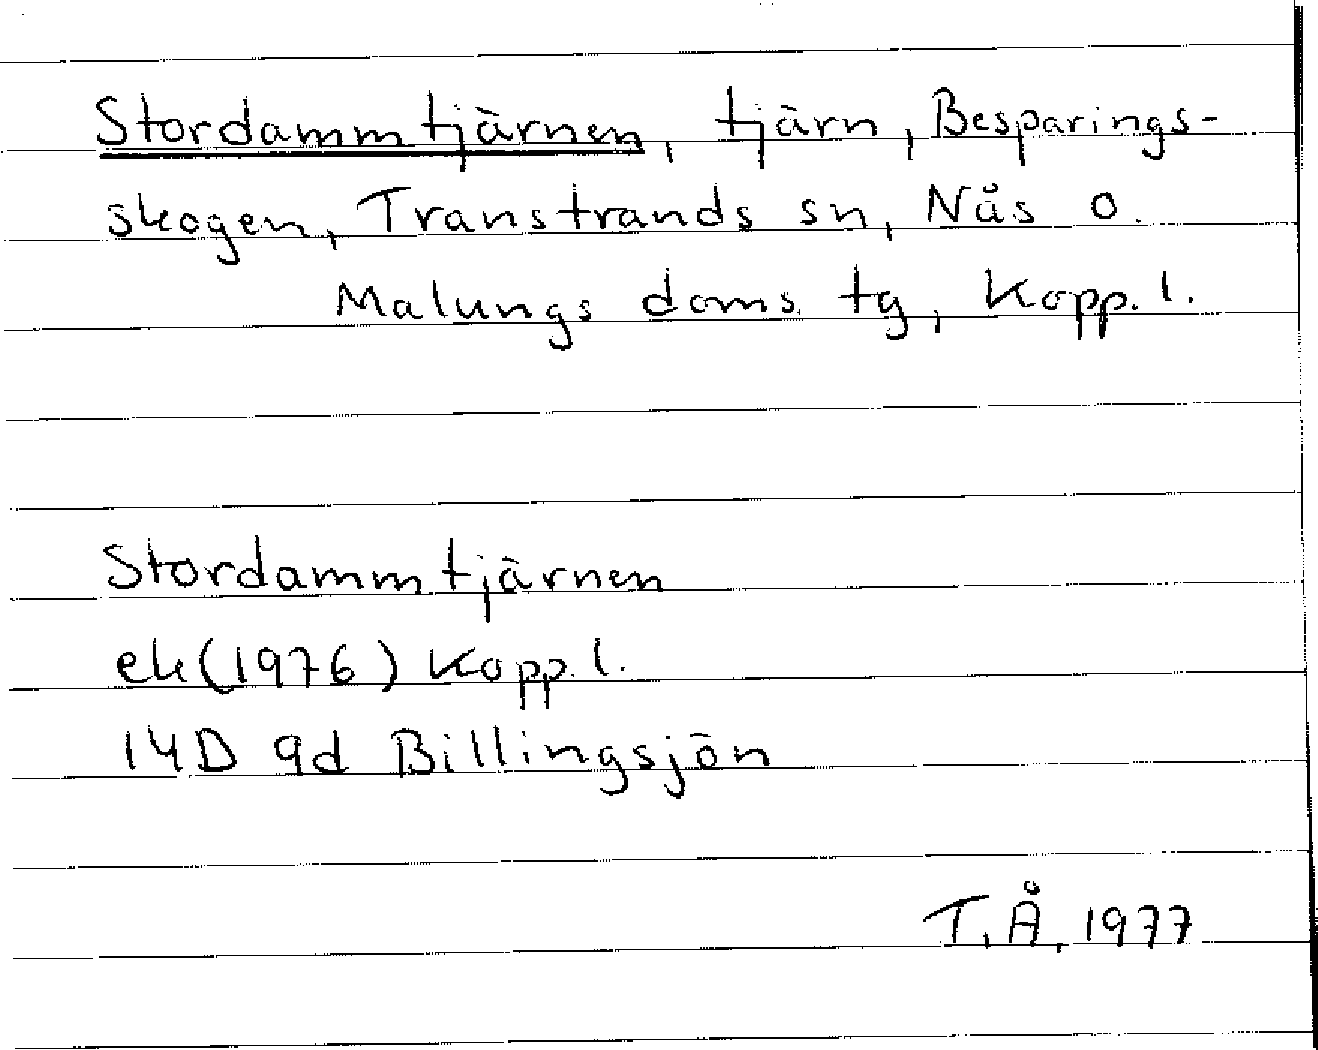 Stordammtjärnen, tjärn, Besparings-
skogen, Transtrands sn, Nås o.
Malungs doms. tg, Kopp. l.
Stordammtjärnen
ek (1976) Kopp. l.
14D 9d Billingsjön
T.Å. 1977